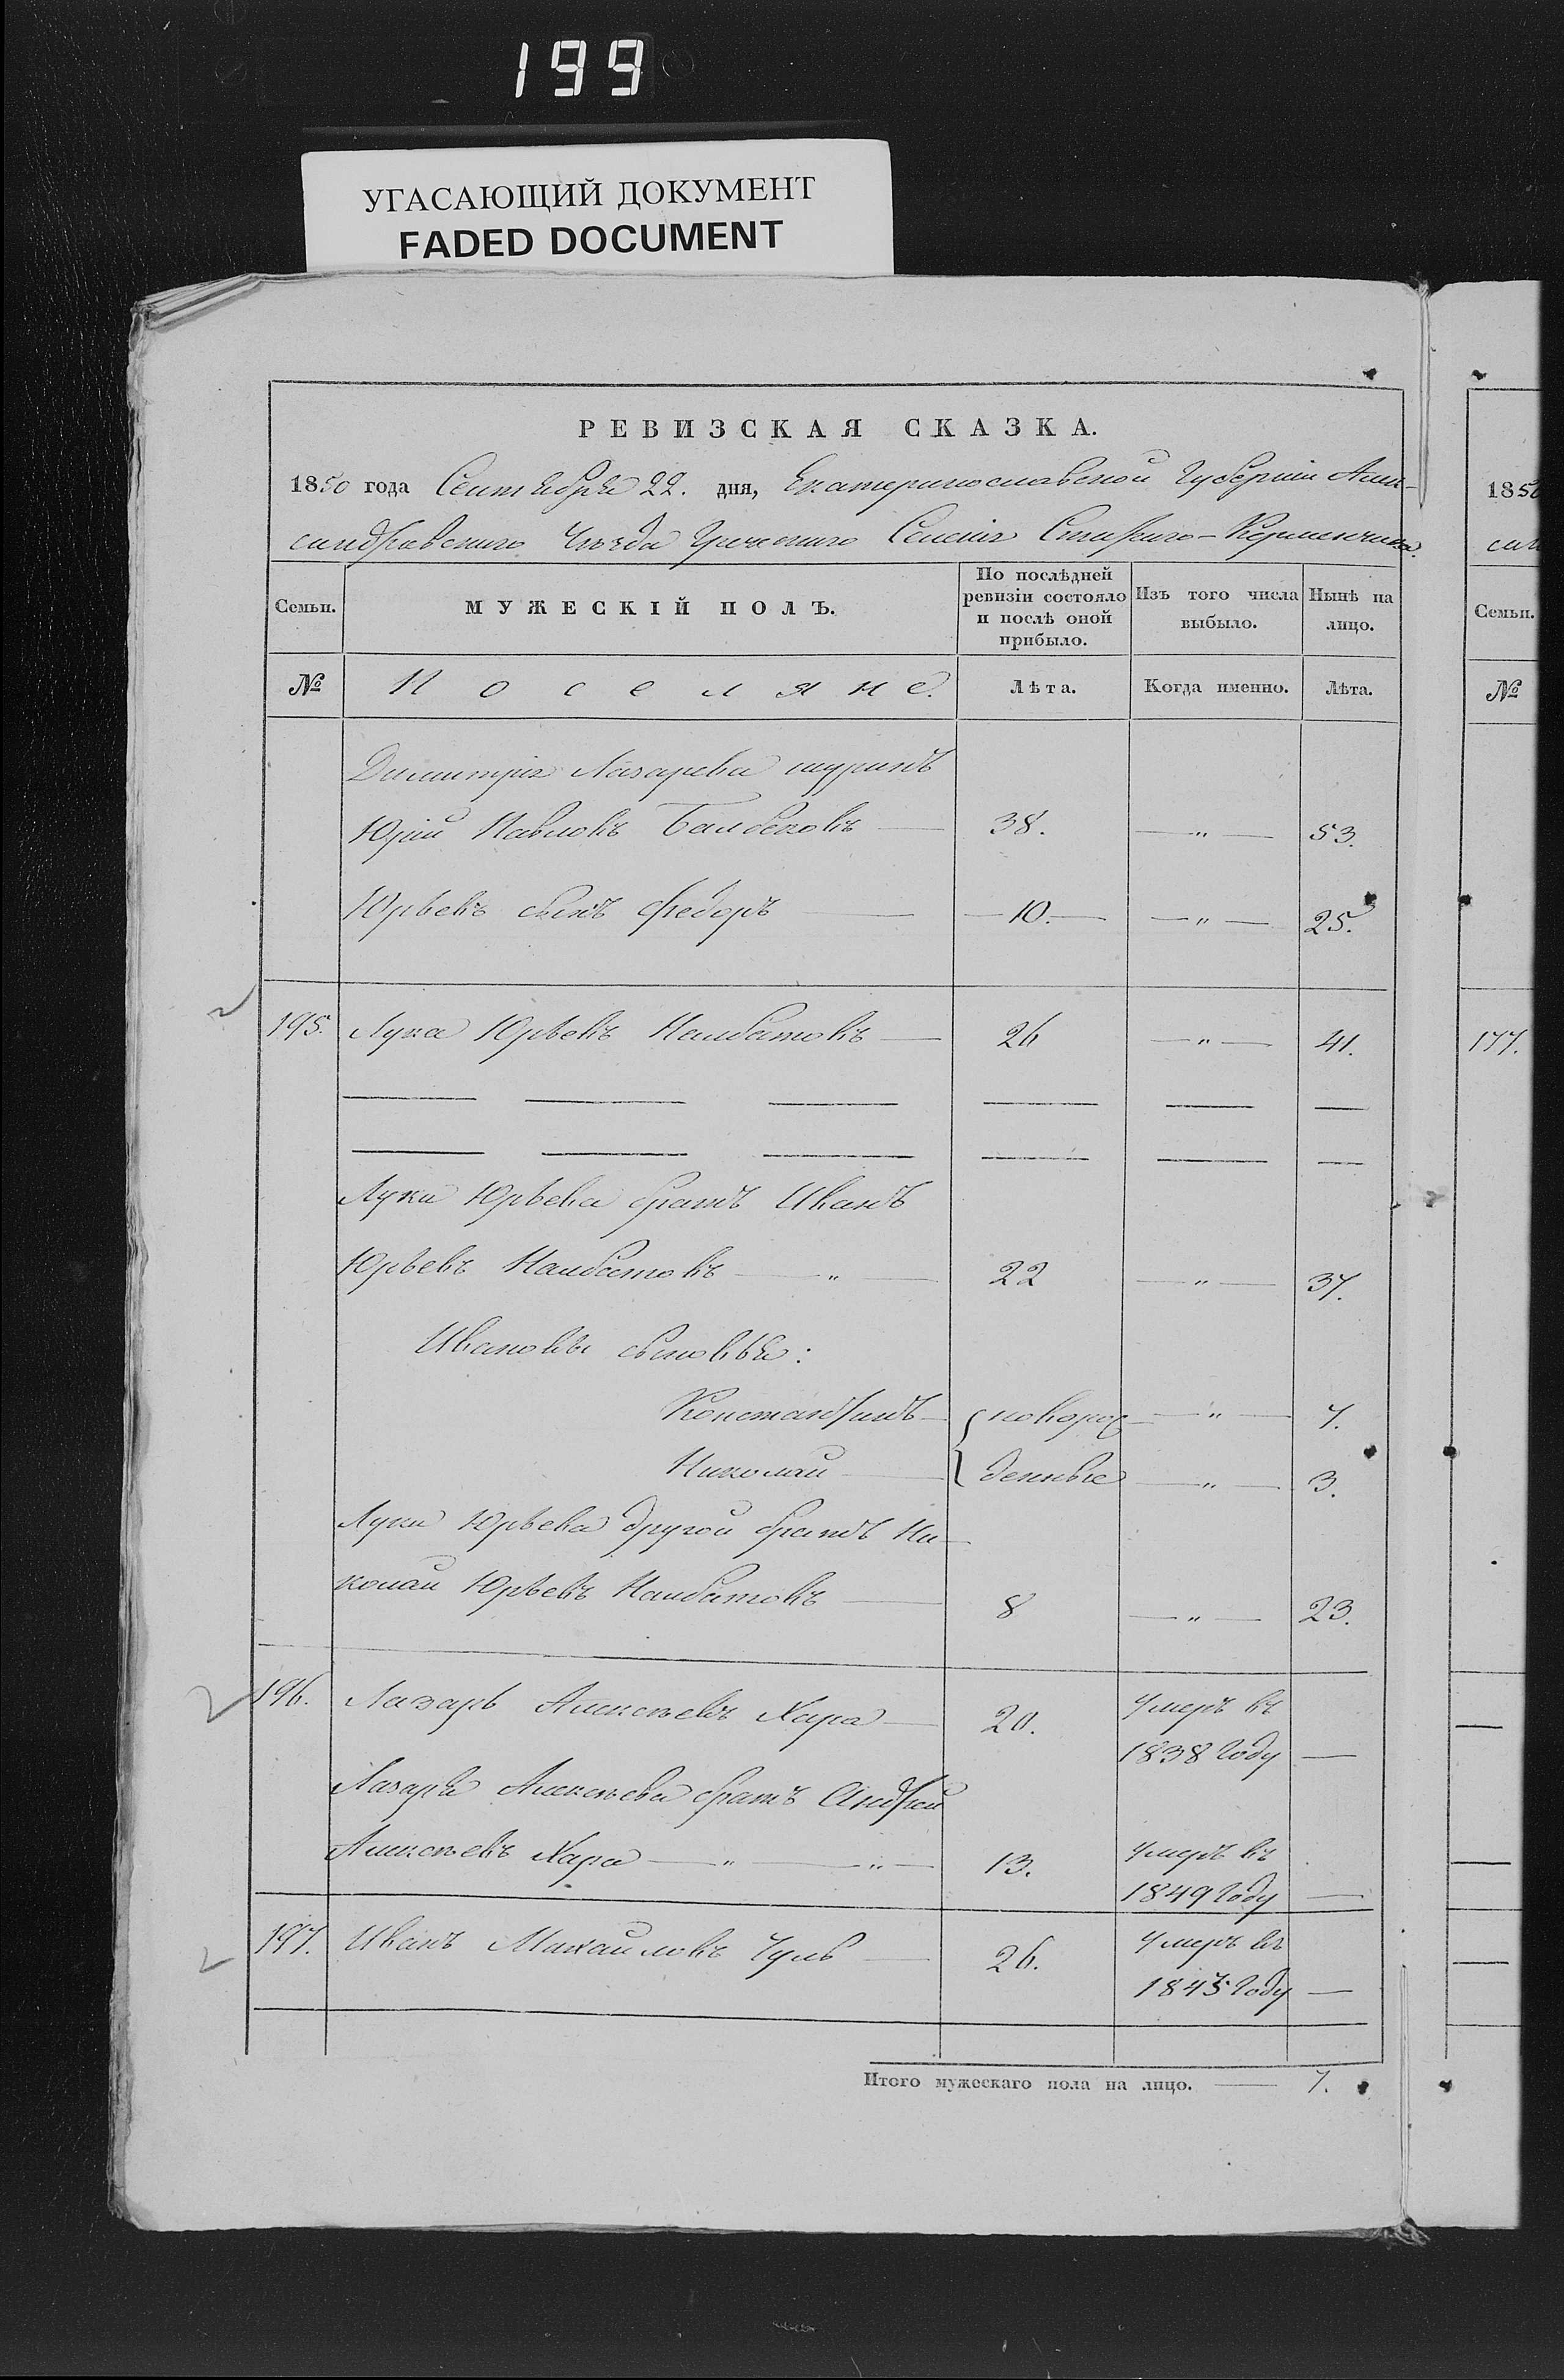 199
УГАСАЮЩИЙ ДОКУМЕНТ
FADED DOCUMENT
РЕВИЗСКАЯ СКАЗКА.
1850 года Сентября 22. дня, Екатеринославской Губерніи Алек-
сандровскаго Уѣзда Греческаго Селенія Стараго-Керменчика.
Семьи. МУЖЕСКІЙ ПОЛЪ. По послѣдней ревизіи состояло и послѣ оной прибыло. Изъ того числа выбыло. Нынѣ на лицо.
№ Поселяне. Лѣта. Когда именно. Лѣта.
Димитрія Лазарева шуринъ
Юрій Павловъ Балбековъ — 38. — " — 53.
Юрьевъ сынъ Федоръ — 10. — " — 25.
195. Лука Юрьевъ Налбатовъ — 26 — " — 41.
Луки Юрьева братъ Иванъ
Юрьевъ Налбатовъ — " — 22 — " — 37.
Ивановы сыновья:
Константинъ — новорож- — " — 7.
Николай — денные — " — 3.
Луки Юрьева другой братъ Ни-
колай Юрьевъ Налбатовъ — 8 — " — 23.
196. Лазарь Алексѣевъ Хара — 20. Умеръ въ
1838 году —
Лазаря Алексѣева братъ Андрей
Алексѣевъ Хара — " — " — 13. Умеръ въ
1849 году —
197. Иванъ Михайловъ Чуль — 26. Умеръ въ
1845 году —
Итого мужескаго пола на лицо. — 7.
185
Семьи.
№
177.